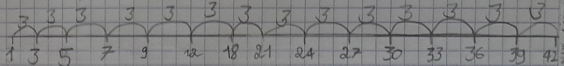 3 3 3 3 3 3 3 3 3 3 3 3 3 3
1 3 5 7 9 12 18 21 24 27 30 33 36 39 42